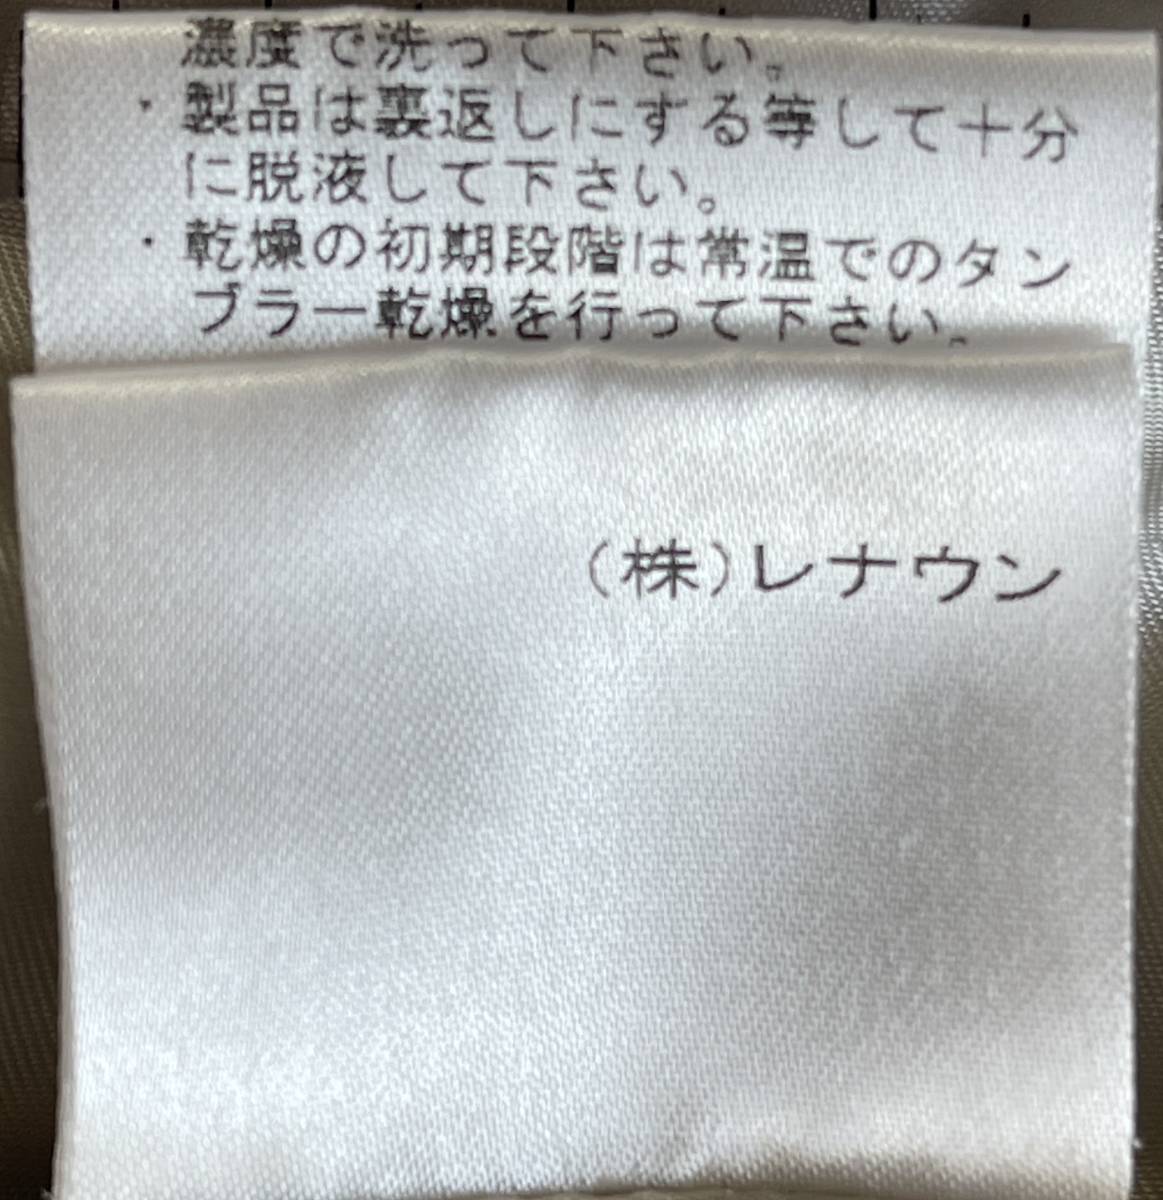 濃度で洗って下さい。
・製品は裏返しにする等して十分
に脱液して下さい。
・乾燥の初期段階は常温でのタン
ブラー乾燥を行って下さい。
(株)レナウン